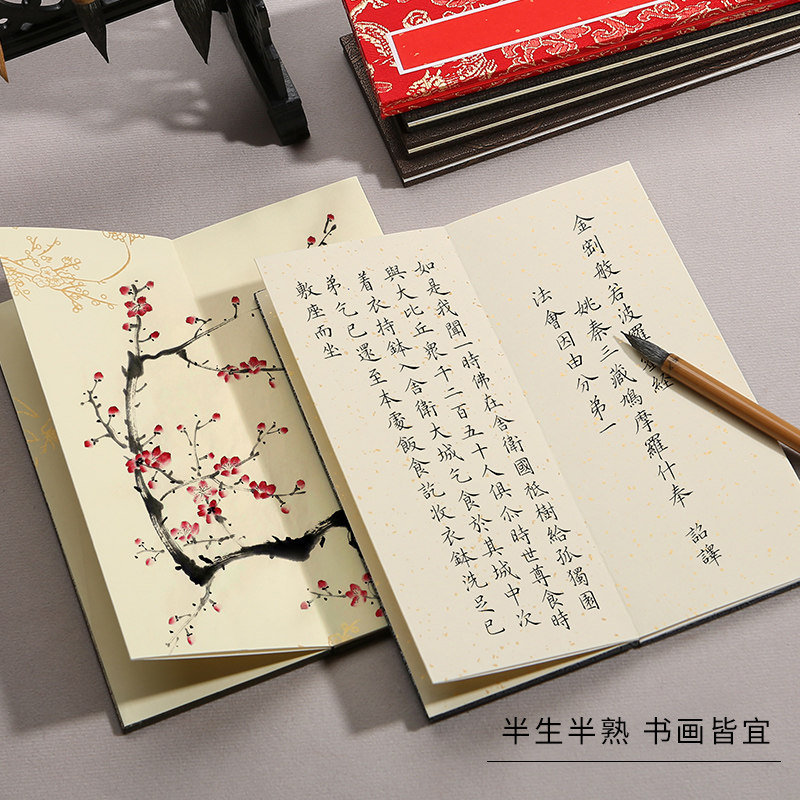 金剛般若波羅蜜經
姚秦三藏鳩摩羅什奉 詔譯
法會因由分第一
如是我聞一時佛在舍衛國祇樹給孤獨園
與大比丘衆千二百五十人俱尒時世尊食時
着衣持鉢入舍衛大城乞食於其城中次
弟乞已還至本處飯食訖收衣鉢洗足已
敷座而坐
半生半熟 书画皆宜